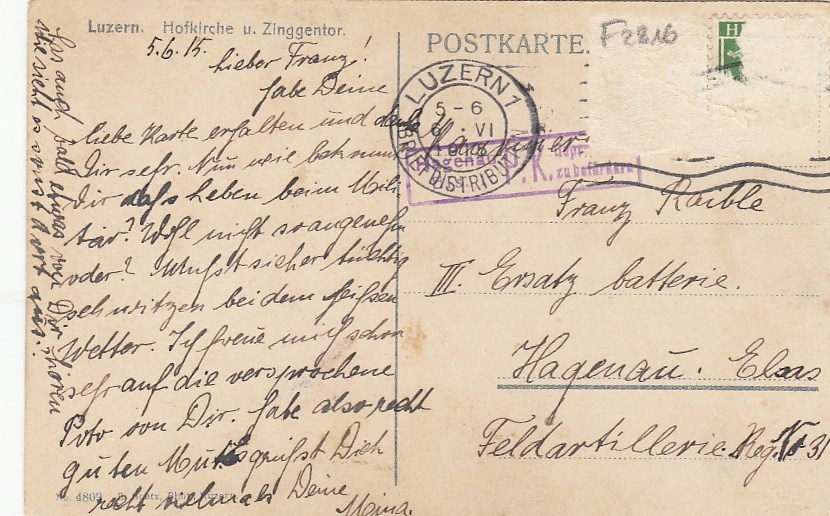 Luzern. Hofkirche u. Zinggentor.
5.6.15.
Lieber Franz!
Habe Deine
liebe Karte erhalten und danke
Dir sehr. Nun wie bekommt
Dir das Leben beim Mili-
tär? Wohl nicht so angenehm
oder? Mußt sicher tüchtig
schwitzen bei dem heissen
Wetter. Ich freue mich schon
sehr auf die versprochene
Foto von Dir. Habe also recht
guten Mut. Es grüßt Dich
recht vielmals Deine
Mina.
Las auch bald etwas von Dir hören
No. 4809
POSTKARTE.
F2816
H
LUZERN 1
5-6
6. VI
BRIEFDISTRIBUT
Hagenau
P.K.
zu befördern
Kanonier
Franz Raible
III. Ersatz batterie.
Hagenau. Elsas
Feldartillerie. Reg. No 31